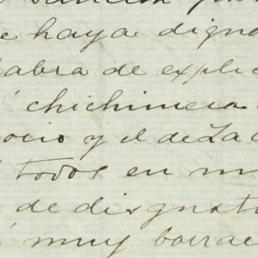 e haya digno
abra de explic
chichimeca
ocio y el de La
todos en m
de disgusto
muy borrac